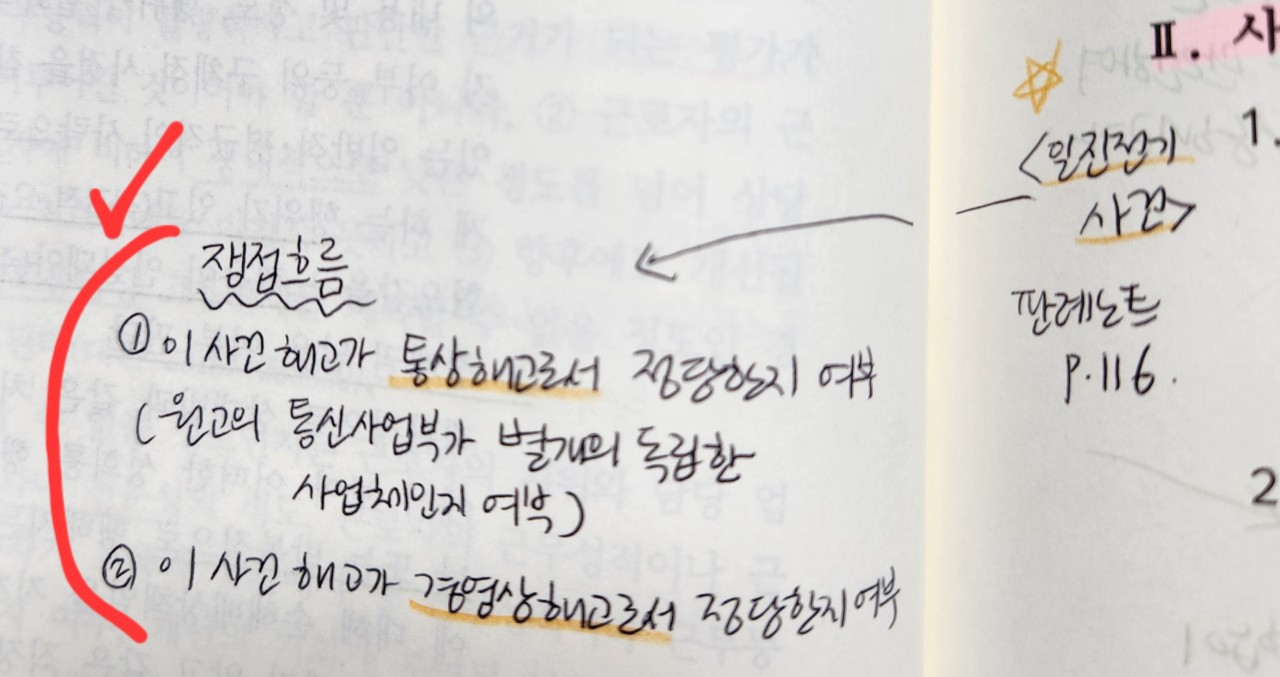 쟁점흐름
① 이 사건 해고가 통상해고로서 정당한지 여부
( 원고의 통신사업부가 별개의 독립한
사업체인지 여부 )
② 이 사건 해고가 경영상해고로서 정당한지 여부
Ⅱ. 사
1.
<일진전기
사건>
판례노트
p.116.
2